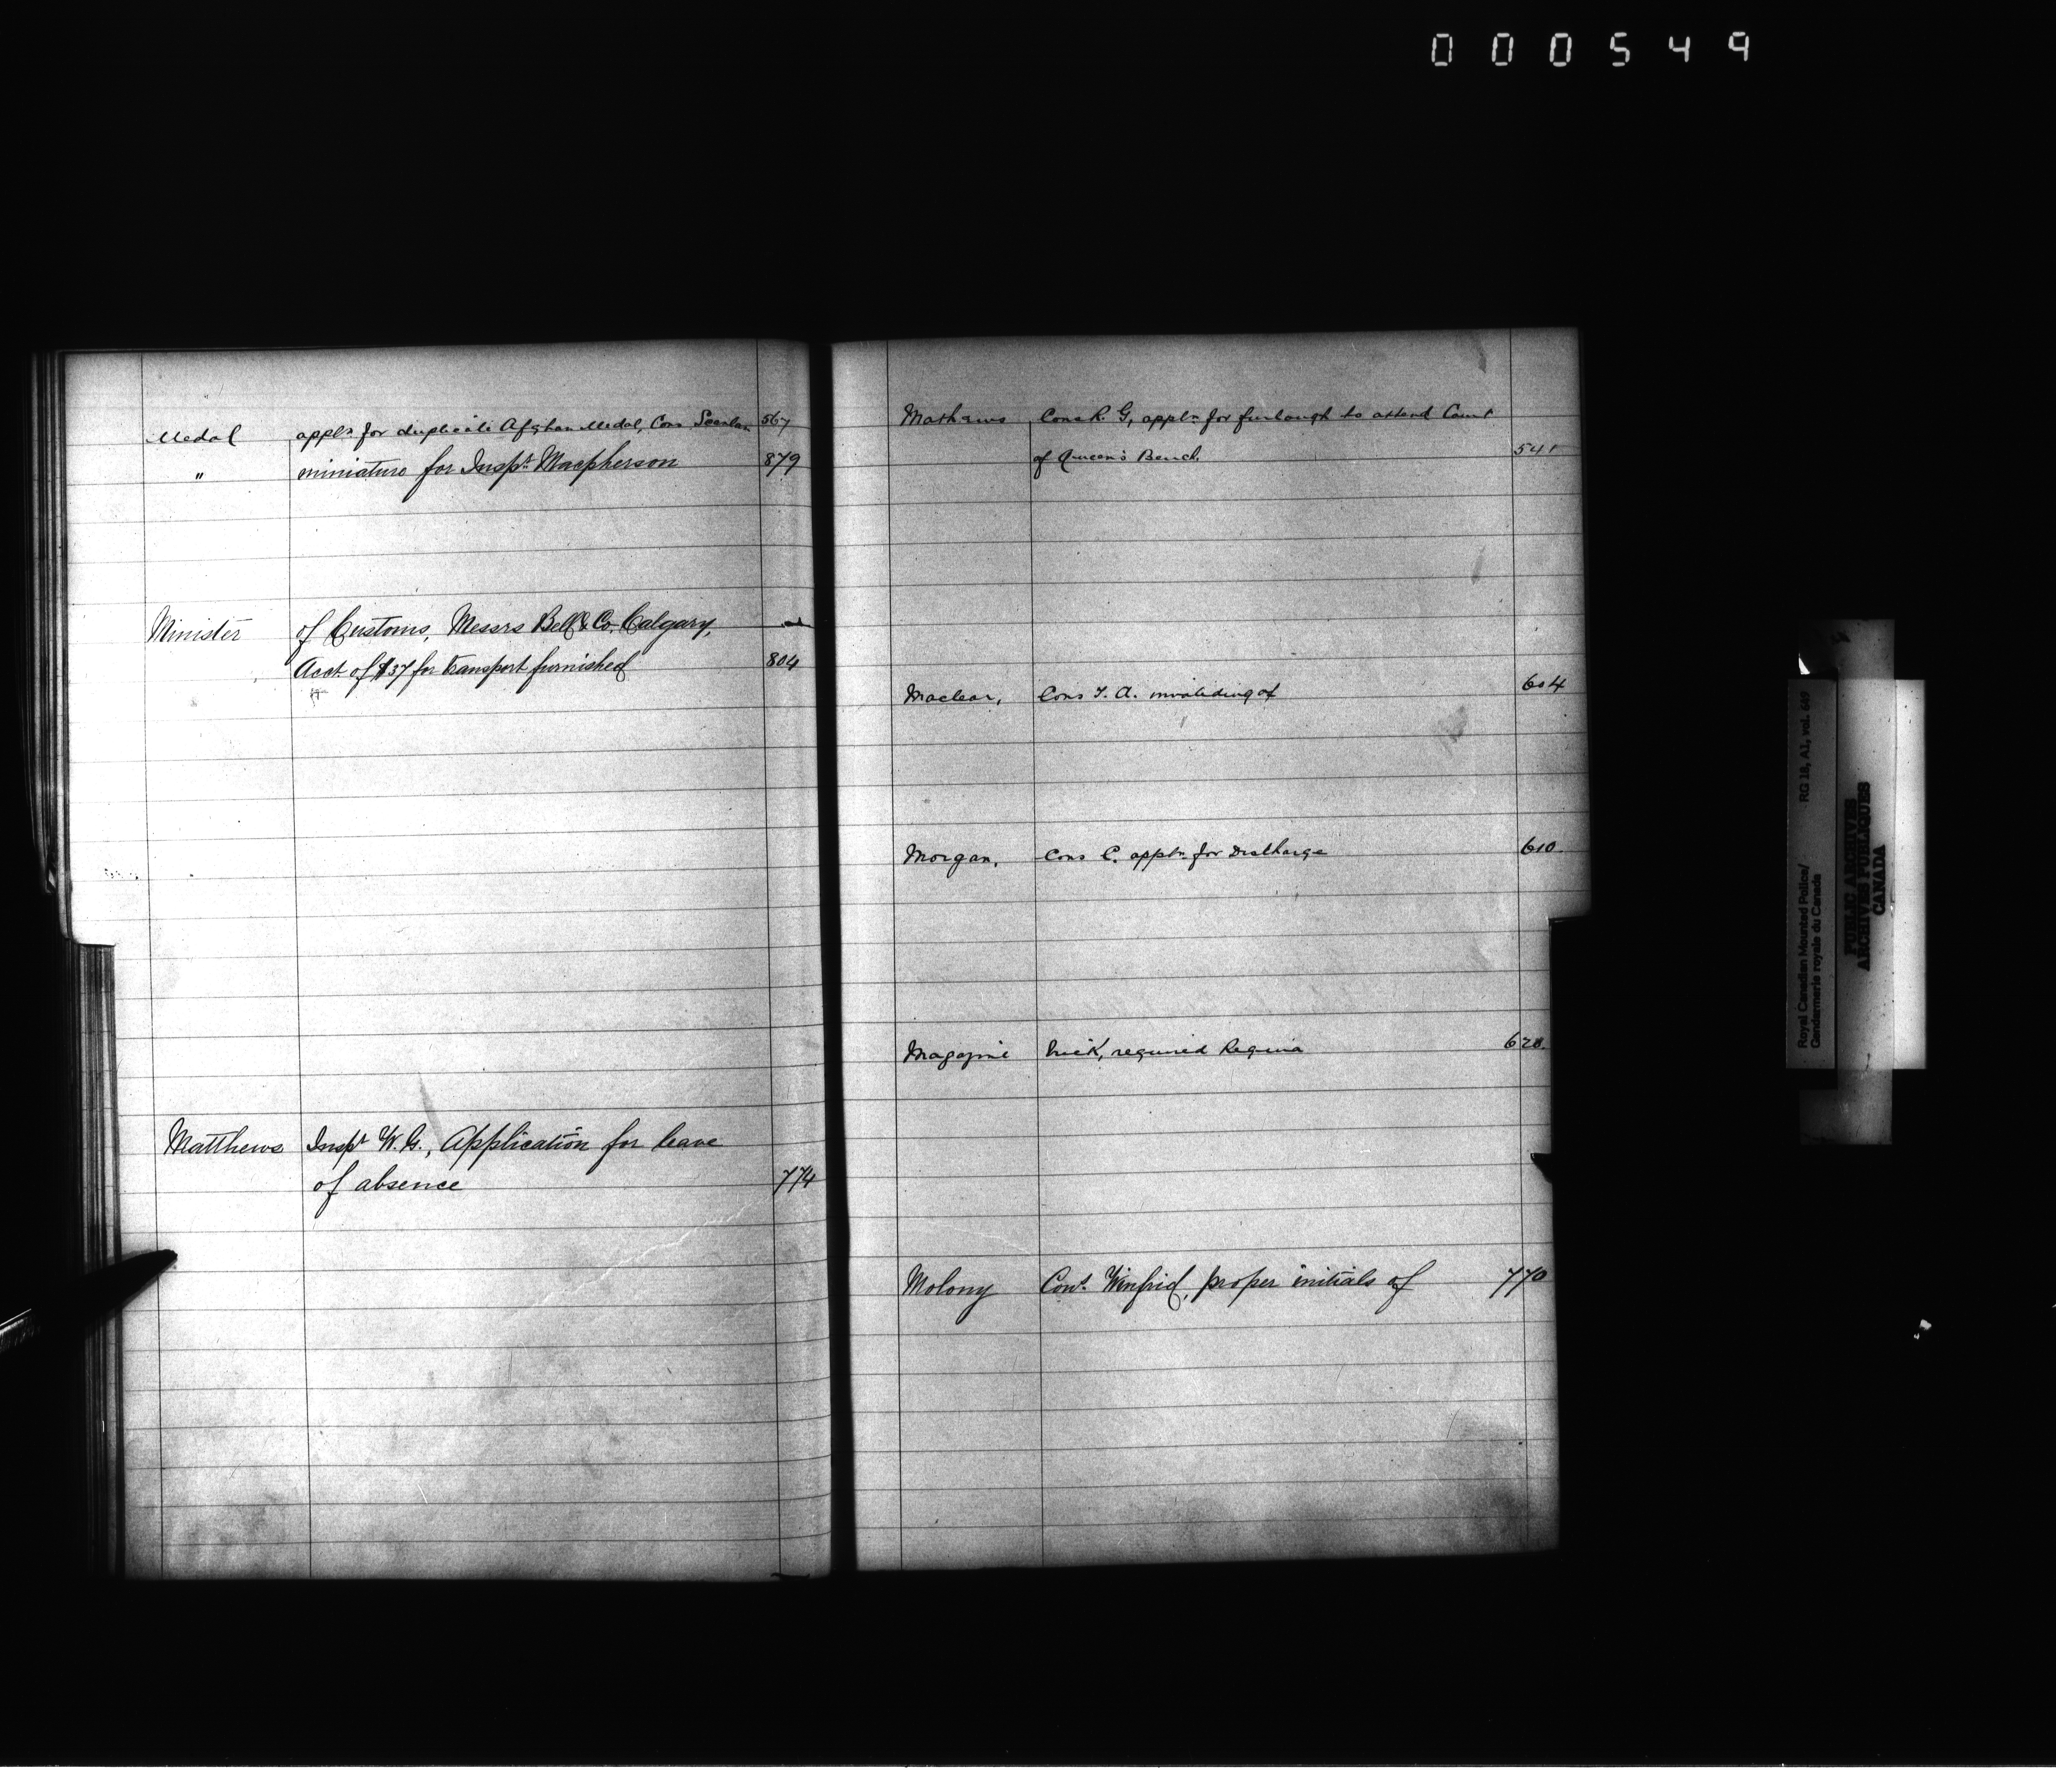 000549
Medal appln for duplicate Afghan Medal, Cons Scanlan 567
" miniature for Inspt. Macpherson 879
Minister of Customs, Messrs Bell & Co. Calgary,
Acct. of $37 for transport furnished 804
Matthews Inspt W. G., Application for leave
of absence 774
Mathews Cons R. G, appln for furlough to attend Court
of Queen's Bench. 541
Maclear, Cons T. A. invaliding of 604
Morgan, Cons C. appln for Discharge 610
Magazine required Regina 628.
Molony Const. Winfrid, proper initials of 770
Royal Canadian Mounted Police/
Gendarmerie royale du Canada
RG 18, A1, vol. 669
PUBLIC ARCHIVES
ARCHIVES PUBLIQUES
CANADA